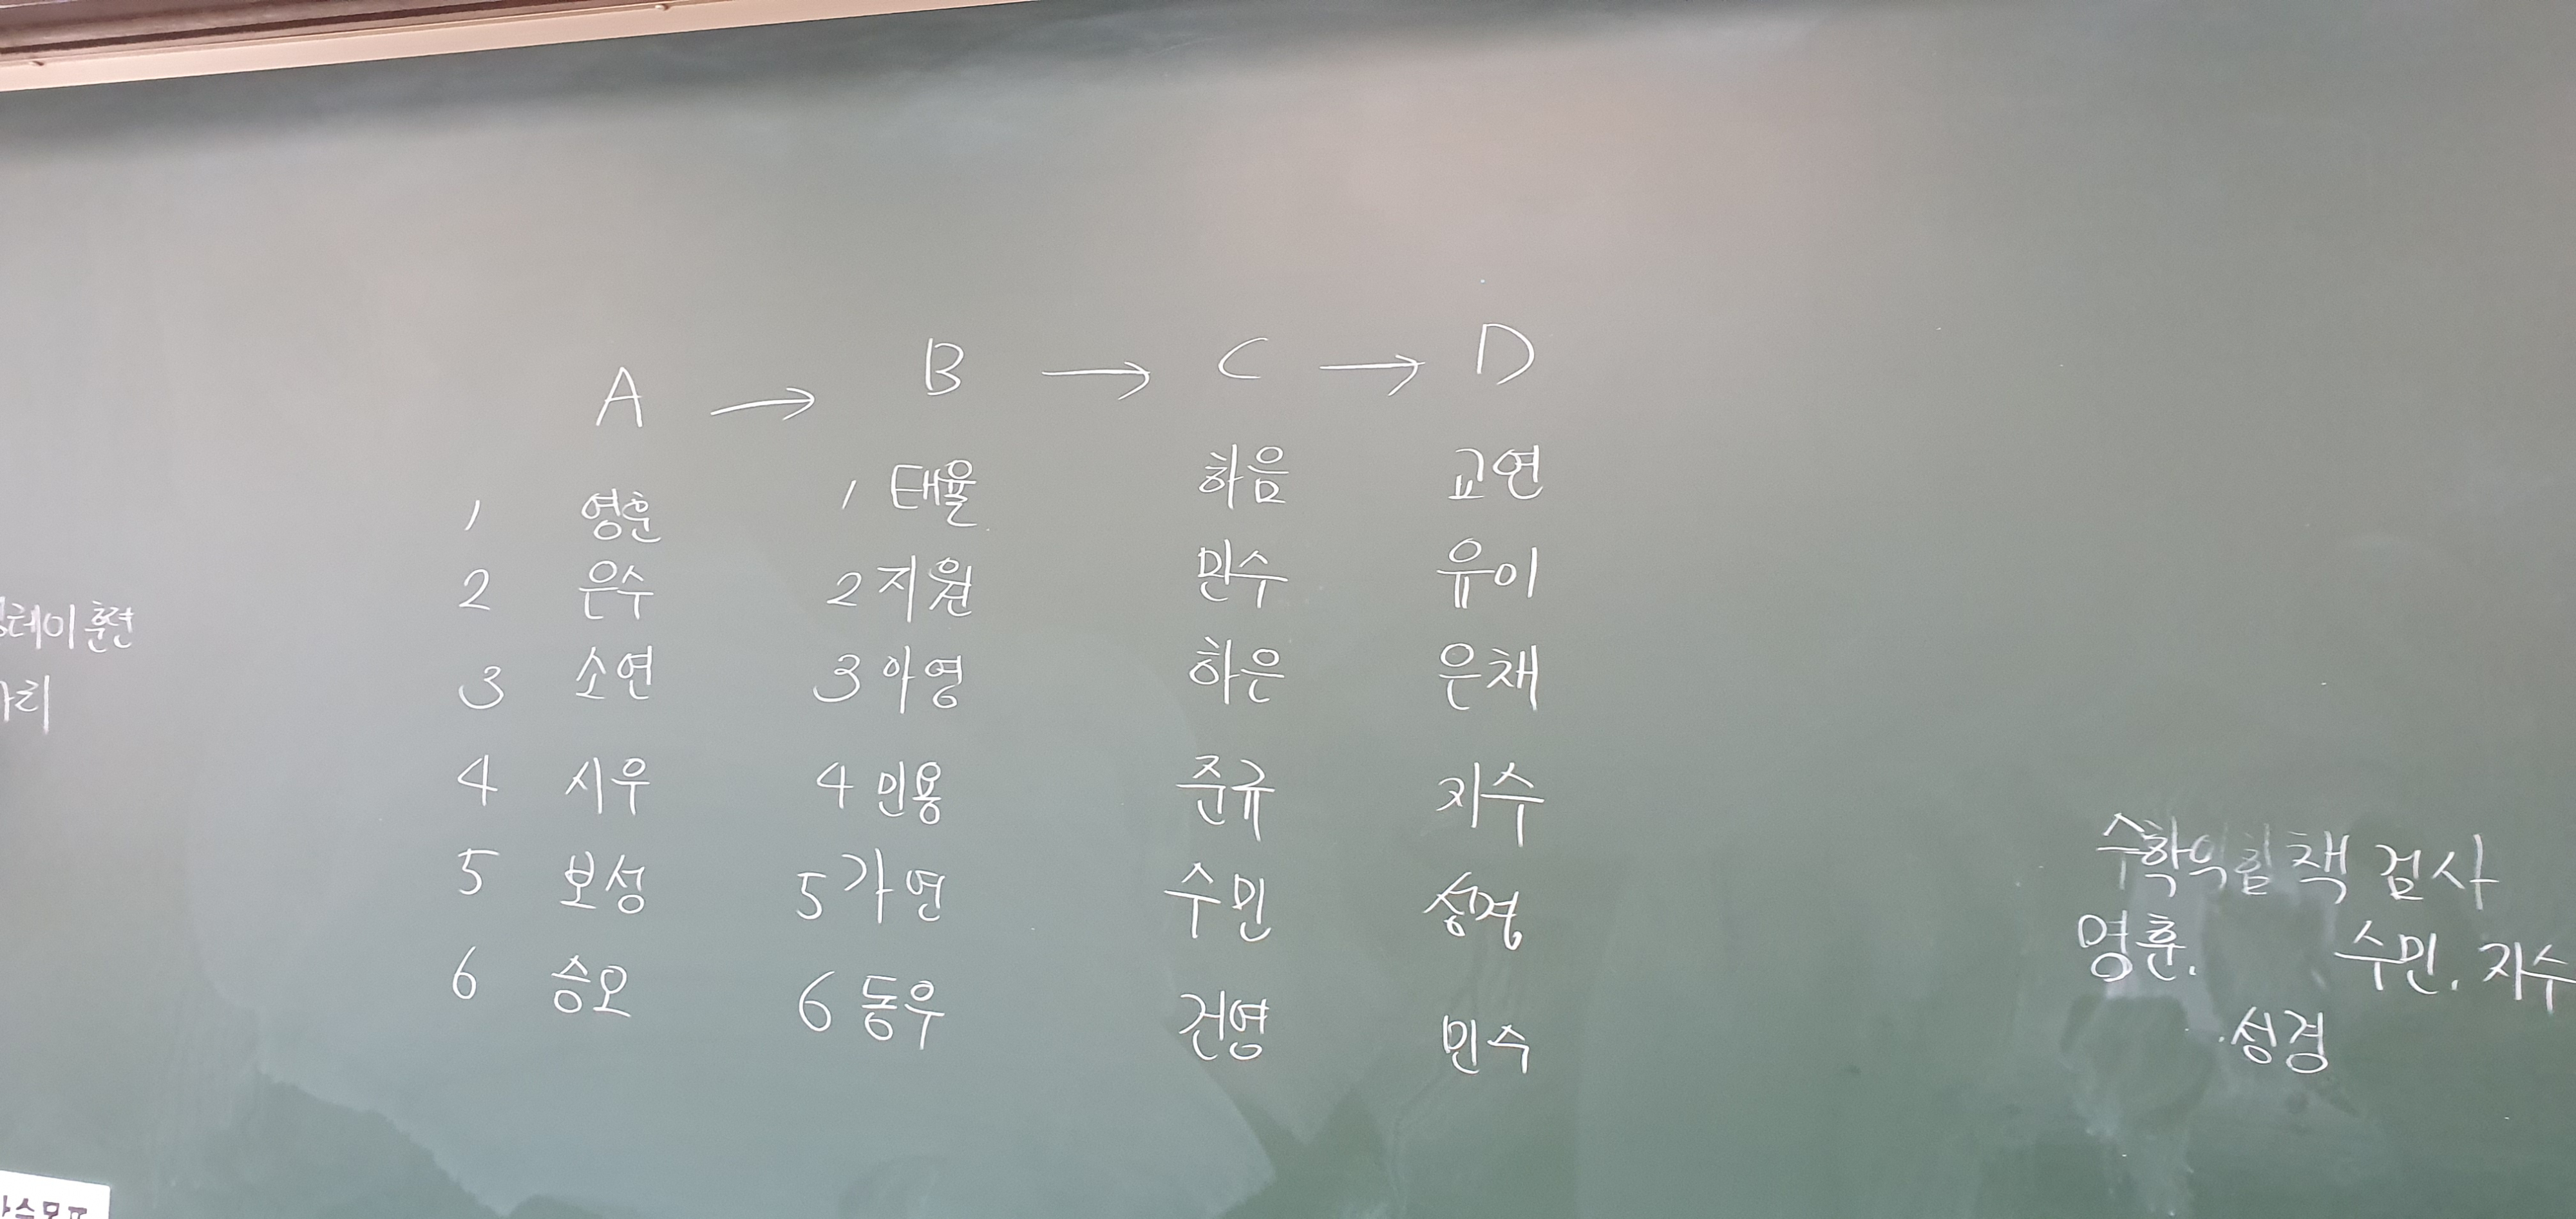 A → B → C → D
1 영훈 1 태율 하음 교연
2 은수 2 지원 민수 유이
3 소연 3 아영 하은 은채
4 시우 4 민용 준규 지수
5 보성 5 가연 수민 성경
6 승오 6 동우 건영 민수
훈련
수학익힘책 검사
영훈. 수민. 지수
.성경